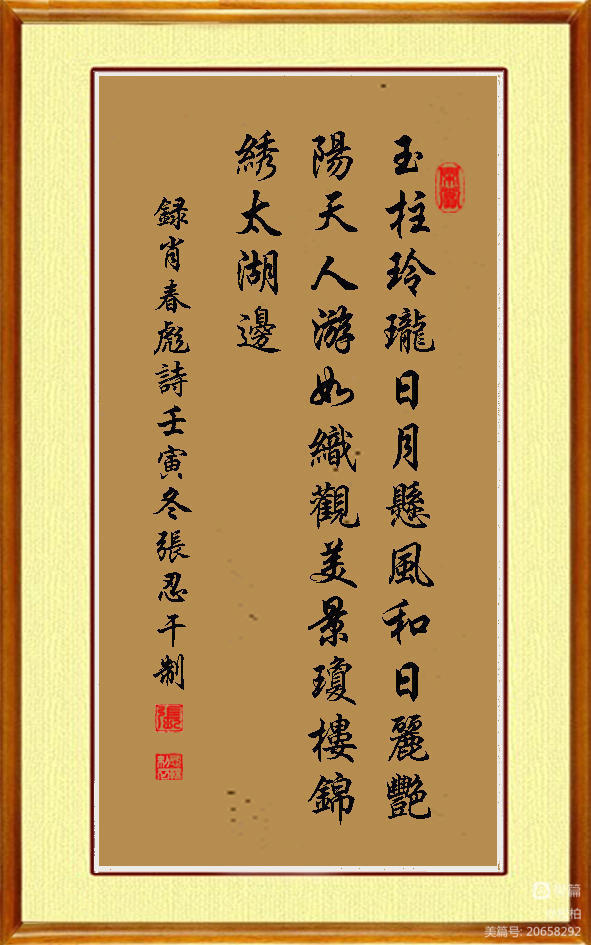 玉柱玲瓏日月懸風和日麗艷
陽天人游如織觀美景瓊樓錦
綉太湖邊
録肖春彪詩壬寅冬張忍干制
張
美篇
柏
美篇号: 20658292